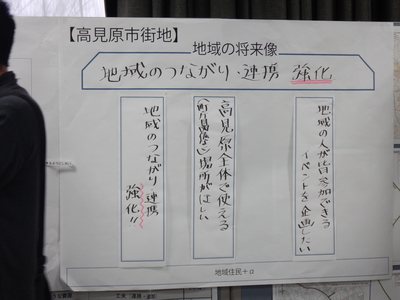 【高見原市街地】
地域の将来像
地域のつながり・連携 強化
地域の人が皆参加できる
イベントを企画したい
高見原全体で使える
場所がほしい
地域のつながり 連携
強化!!